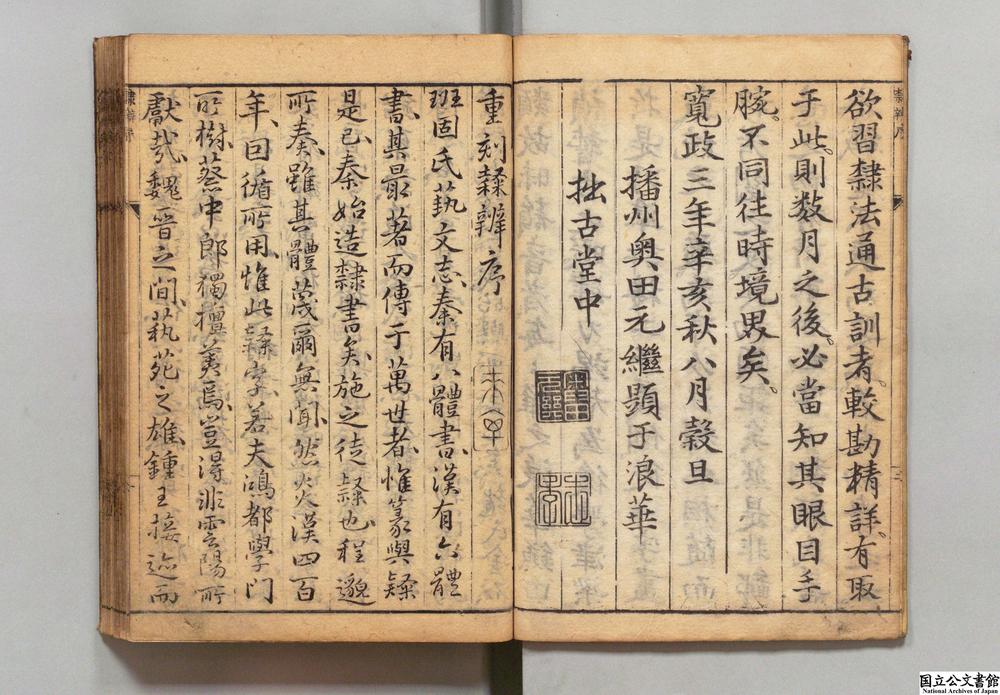 欲習隸法通古訓者較勘精詳有取
于此則数月之後必當知其眼目手
腕不同往時境界矣
寬政三年辛亥秋八月穀旦
播州奧田元繼題于浪華
拙古堂中
重刻隸辨序
班固氏藝文志秦有八體書漢有六體
書其最著而傳于萬世者惟篆與隸
是已秦始造隸書矣施之徒隸也程邈
所奏雖其體茂爾無聞然炎漢四百
年回循所用惟此隸字若夫鴻都學門
所樹蔡中郎獨擅美焉豈得非雲陽所
獻哉魏晉之間藝苑之雄鍾王接迹而
国立公文書館
National Archives of Japan